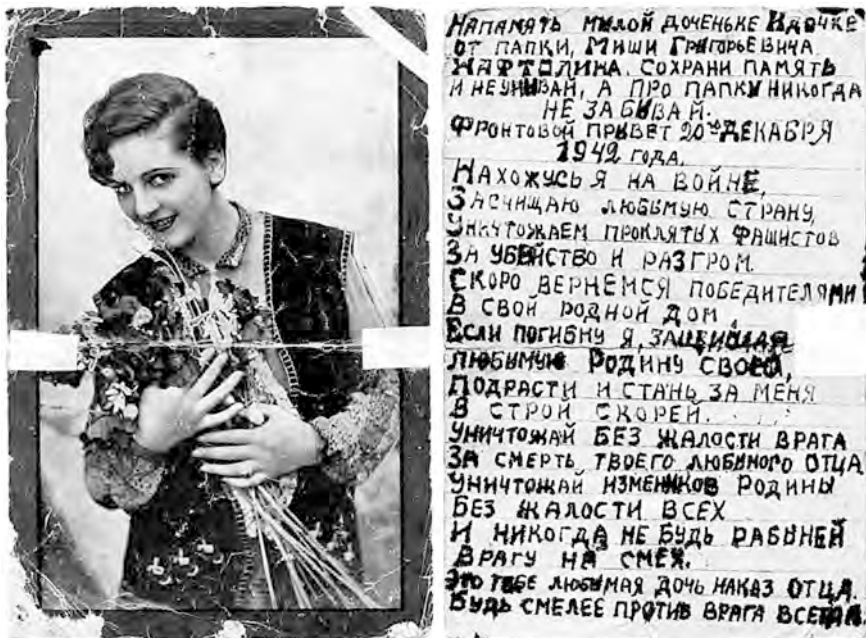 НАПАМЯТЬ МИЛОЙ ДОЧЕНЬКЕ ИДОЧКЕ
ОТ ПАПКИ, МИШИ ГРИГОРЬЕВИЧА
НАФТОЛИНА. СОХРАНИ ПАМЯТЬ
И НЕ УНЫВАЙ, А ПРО ПАПКУ НИКОГДА
НЕ ЗАБЫВАЙ.
ФРОНТОВОЙ ПРИВЕТ 20го ДЕКАБРЯ
1942 ГОДА.
НАХОЖУСЬ Я НА ВОЙНЕ,
ЗАСЧИЩАЮ ЛЮБЫМУЮ СТРАНУ,
УНИЧТОЖАЕМ ПРОКЛЯТЫХ ФАШИСТОВ
ЗА УБЕЙСТВО И РАЗГРОМ.
СКОРО ВЕРНЕМСЯ ПОБЕДИТЕЛЯМИ
В СВОЙ РОДНОЙ ДОМ,
ЕСЛИ ПОГИБНУ Я,
ЛЮБЫМУЮ РОДИНУ СВОЮ,
ПОДРАСТИ И СТАНЬ ЗА МЕНЯ
В СТРОЙ СКОРЕЙ.
УНИЧТОЖАЙ БЕЗ ЖАЛОСТИ ВРАГА
ЗА СМЕРТЬ ТВОЕГО ЛЮБЫМОГО ОТЦА
УНИЧТОЖАЙ ИЗМЕННИКОВ РОДИНЫ
БЕЗ ЖАЛОСТИ ВСЕХ
И НИКОГДА НЕ БУДЬ РАБЫНЕЙ
ВРАГУ НА СМЕХ.
ЭТО ТЕБЕ ЛЮБЫМАЯ ДОЧЬ НАКАЗ ОТЦА.
БУДЬ СМЕЛЕЕ ПРОТИВ ВРАГА ВСЕГДА.